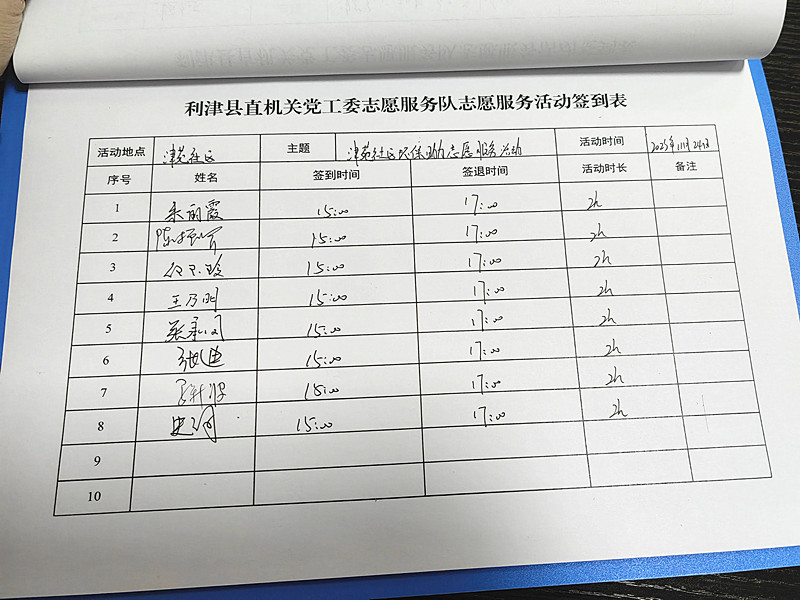 利津县直机关党工委志愿服务队志愿服务活动签到表
活动地点 津苑社区 主题 津苑社区环保 志愿服务活动 活动时间 2023年11月24日
序号 姓名 签到时间 签退时间 活动时长 备注
1 丽霞 15:00 17:00 2h
2 陈 15:00 17:00 2h
3 15:00 17:00 2h
4 王乃明 15:00 17:00 2h
5 张 15:00 17:00 2h
6 15:00 17:00 2h
7 15:00 17:00 2h
8 15:00 17:00 2h
9
10